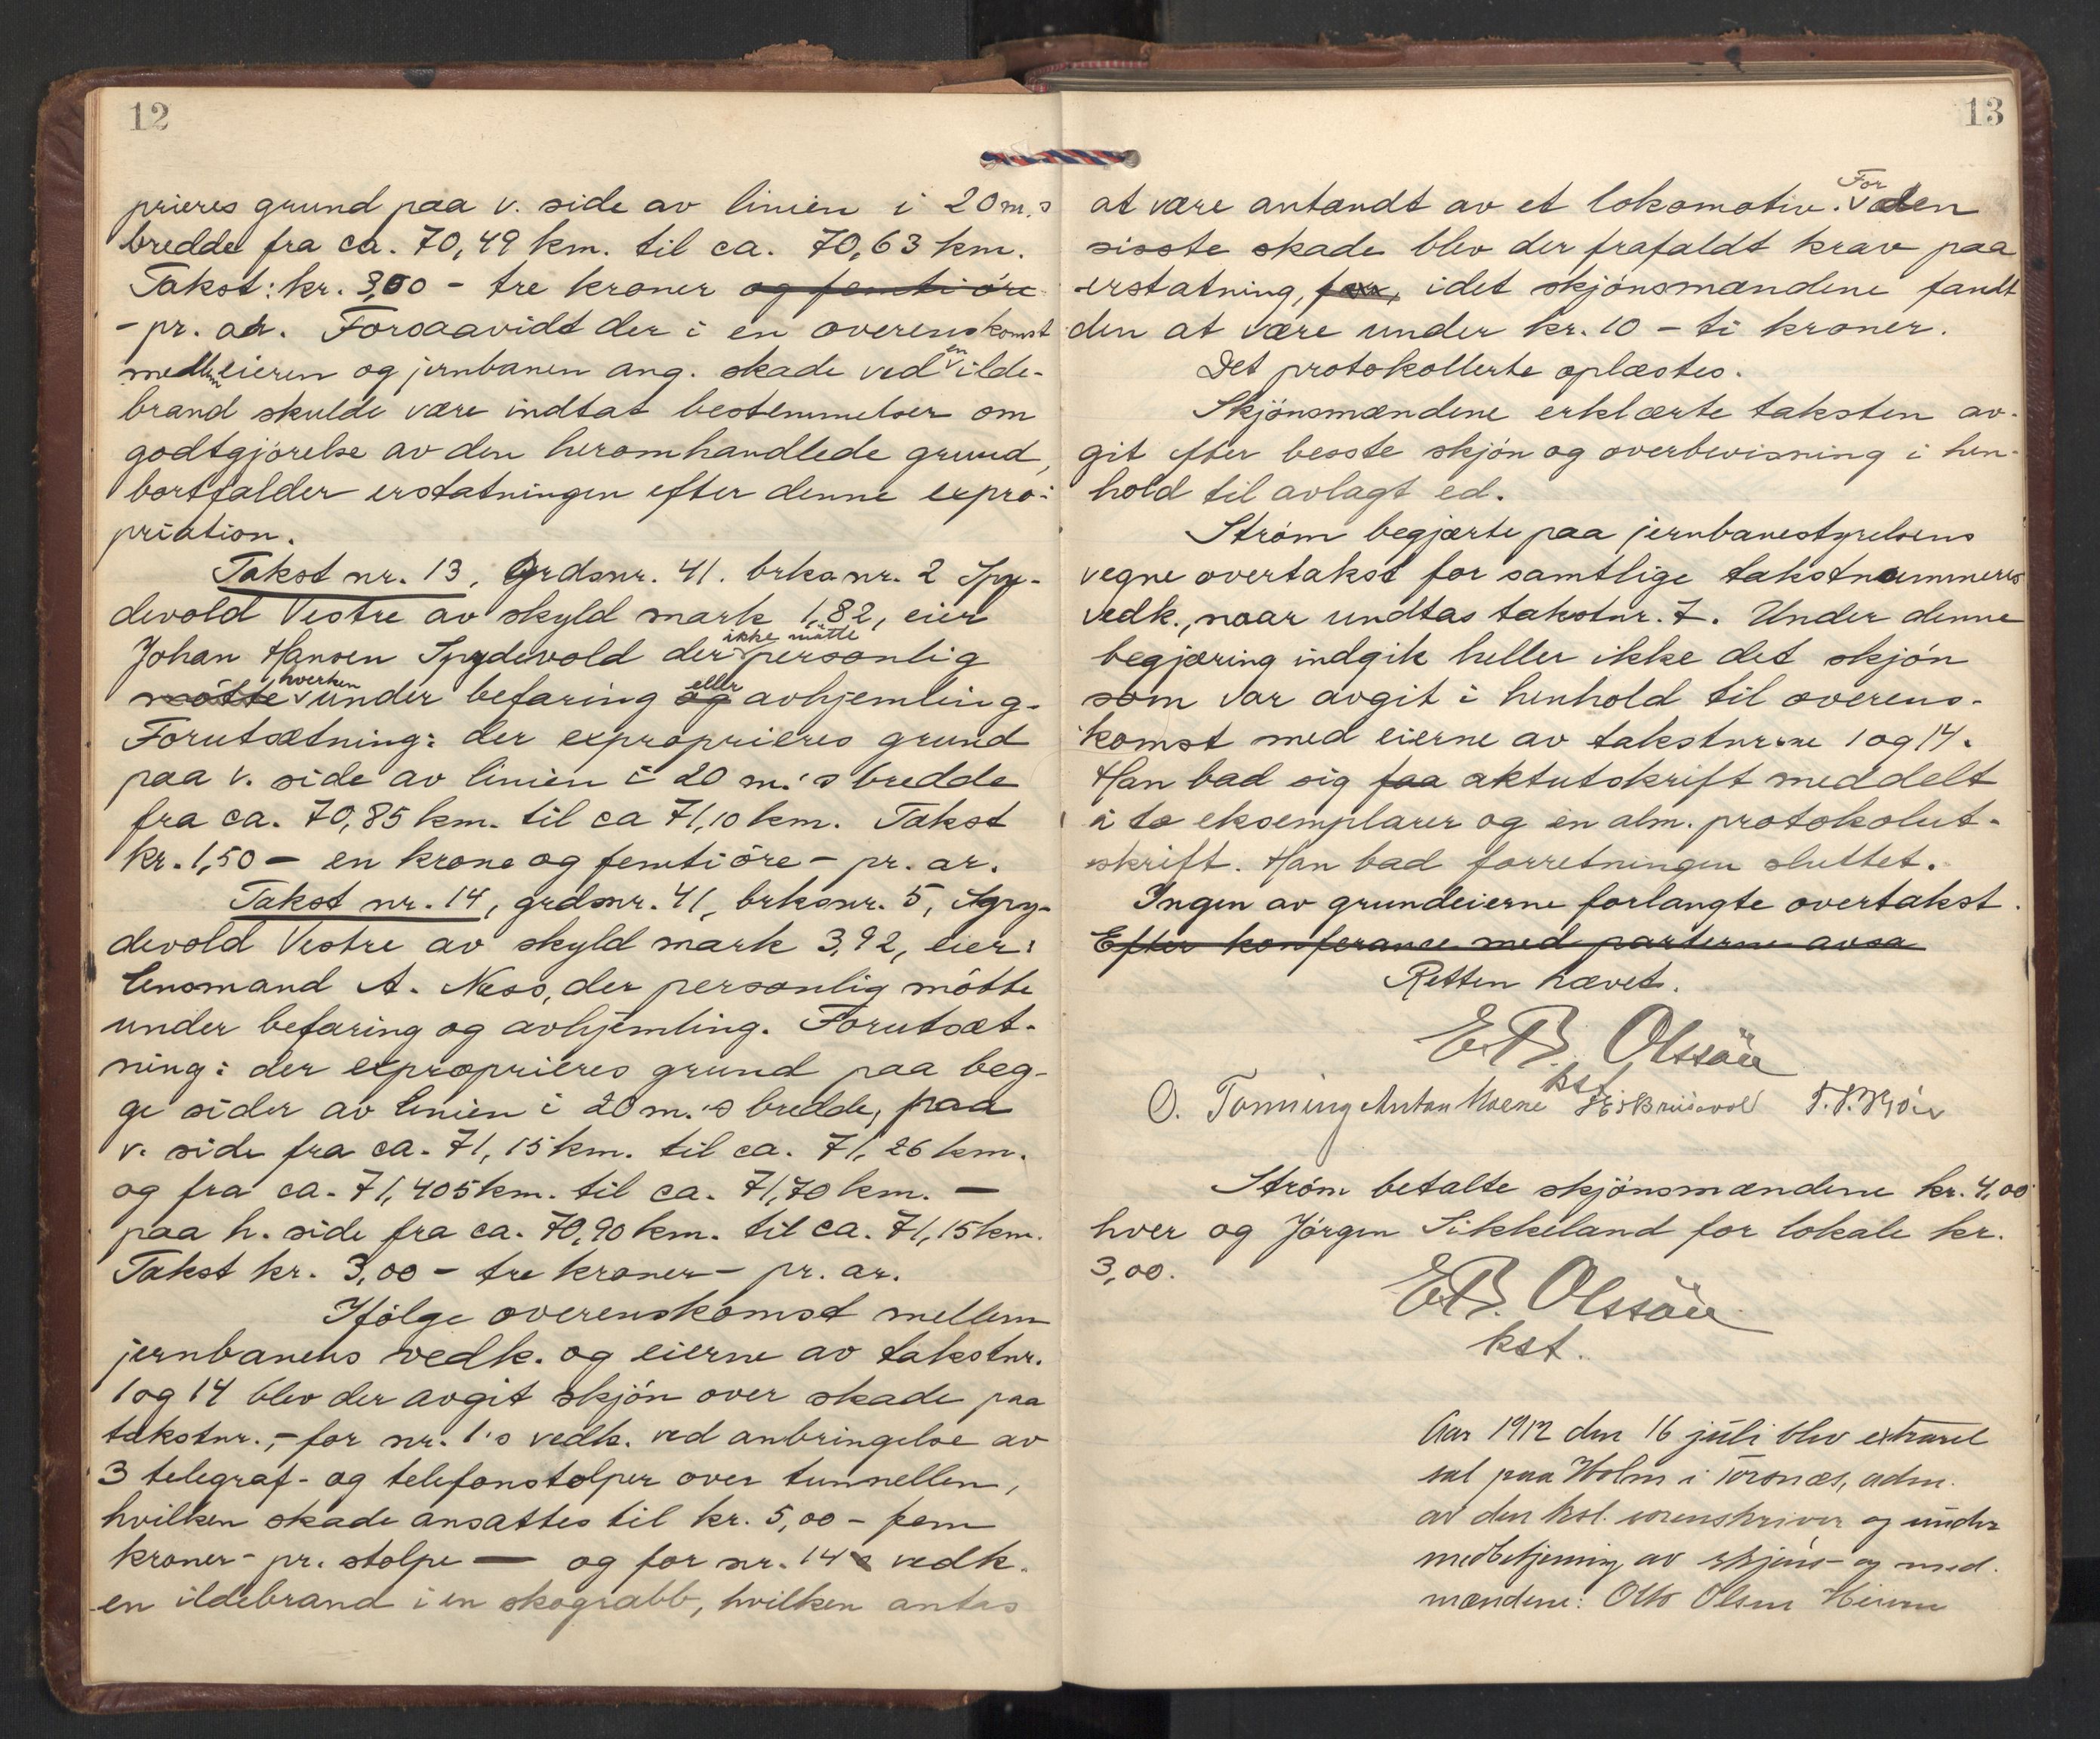 12
prieres grund paa v. side av linien i 20 m.s
bredde fra ca. 70,49 km. til ca. 70,63 km.
Takst: kr. 3,00 - tre kroner og femti öre
- pr. ar. Forsaavidt der i en overenskomst
mellem eieren og jernbanen ang. skade ved en ilde-
brand skulde være indtat bestemmelser om
godtgjörelse av den heromhandlede grund,
bortfalder erstatningen efter denne expro-
priation.
Takst nr. 13, Grdsnr. 41. brksnr. 2 Spy-
devold Vestre av skyld mark 1,82, eier
Johan Hansen Spydevold der ikke mötte personlig
mötte hverken under befaring og eller avhjemling.
Forutsætning: der exproprieres grund
paa v. side av linien i 20 m.'s bredde
fra ca. 70,85 km. til ca 71,10 km. Takst
kr. 1,50 - en krone og femti öre - pr. ar.
Takst nr. 14, grdsnr. 41, brksnr. 5, Spy-
devold Vestre av skyld mark 3,92, eier:
lensmand A. Næss, der personlig mötte
under befaring og avhjemling. Forutsæt-
ning: der exproprieres grund paa beg-
ge sider av linien i 20 m.'s bredde, paa
v. side fra ca. 71,15 km. til ca. 71,26 km.
og fra ca. 71,405 km. til ca. 71,70 km. -
paa h. side fra ca. 70,90 km. til ca. 71,15 km.
Takst kr. 3,00 - tre kroner - pr. ar.
Ifölge overenskomst mellem
jernbanens vedk. og eierne av takstnr.
1 og 14 blev der avgit skjön over skade paa
takstnr., - for nr. 1's vedk. ved anbringelse av
3 telegraf- og telefonstolper over tunnellen,
hvilken skade ansattes til kr. 5,00 - fem
kroner - pr. stolpe - og for nr. 14s vedk.
en ildebrand i en skograbb, hvilken antas
13
at være antændt av et lokomotiv. For den
sisste skade blev der frafaldt krav paa
erstatning, idet skjönsmændene fandt
den at være under kr. 10 - ti kroner.
Det protokollerte oplæstes.
Skjönsmændene erklærte taksten av-
git efter besste skjön og overbevisning i hen-
hold til avlagt ed.
Ström begjærte paa jernbanestyrelsens
vegne overtakst for samtlige takstnummeres
vedk., naar undtas takstnr. 7. Under denne
begjæring indgik heller ikke det skjön
som var avgit i henhold til overens-
komst med eierne av takstnrne 1 og 14.
Han bad sig faa aktutskrift meddelt
i to eksemplarer og en alm. protokolut-
skrift. Han bad forretningen sluttet.
Ingen av grundeierne forlangte overtakst.
Efter konferance med parterne avsa
Retten hævet.
E.B. Olssön
kst.
O. Tonning Anton Moene
Ström betalte skjönsmændene kr. 4,00
hver og Jörgen Sikkeland for lokale kr.
3,00.
E.B. Olssön
kst.
Aar 1912 den 16 juli blev extraret
sat paa Holm i Torsnæs, adm.
av den kst. sorenskriver og under
medbetjening av skjöns- og med.
mændene: Otto Olsen